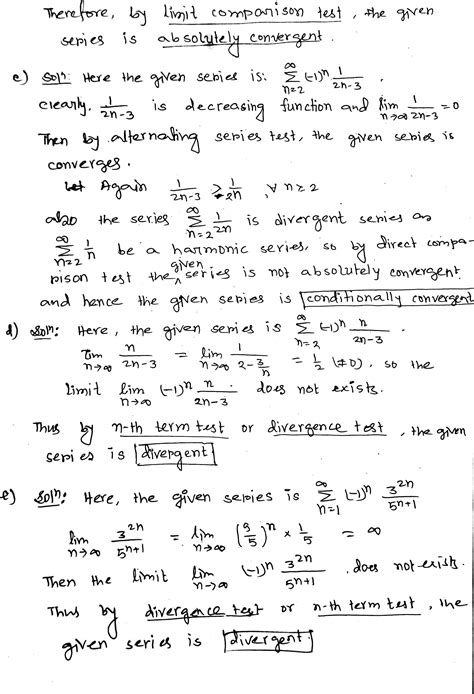 Therefore, by limit comparison test, the given
series is absolutely convergent.
c) Solⁿ: Here the given series is: ∞Σn=2 (-1)ⁿ 1/(2n-3).
clearly, 1/(2n-3) is decreasing function and lim n→∞ 1/(2n-3) = 0
Then by alternating series test, the given series is
converges.
Again 1/(2n-3) ≥ 1/2n, ∀ n ≥ 2
also the series ∞Σn=2 1/2n is divergent series as
∞Σn=2 1/n be a harmonic series, so by direct compa-
rison test the given series is not absolutely convergent
and hence the given series is conditionally convergent
d) Solⁿ: Here, the given series is ∞Σn=2 (-1)ⁿ n/(2n-3).
lim n→∞ n/(2n-3) = lim n→∞ 1/(2-3/n) = 1/2 (≠0), so the
limit lim n→∞ (-1)ⁿ n/(2n-3). does not exists.
Thus by n-th term test or divergence test, the given
series is divergent
e) Solⁿ: Here, the given series is ∞Σn=1 (-1)ⁿ 3²ⁿ/5ⁿ⁺¹
lim n→∞ 3²ⁿ/5ⁿ⁺¹ = lim n→∞ (9/5)ⁿ × 1/5 = ∞
Then the limit lim n→∞ (-1)ⁿ 3²ⁿ/5ⁿ⁺¹. does not exists.
Thus by divergence test or n-th term test, the
given series is divergent